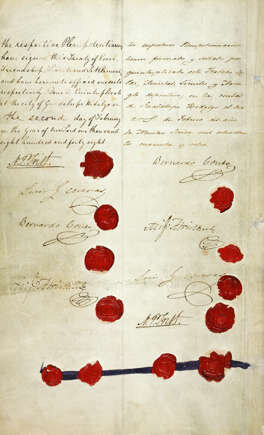 the respective Plenipotentiaries
have signed this Treaty of Peace,
Friendship, Limits and Settlement,
and have hereunto affixed our seals
respectively. Done in Quintuplicate
at the City of Guadalupe Hidalgo on
the second day of February
in the Year of our Lord one thousand
eight hundred and forty eight
N. P. Trist
Luis G. Cuevas
Bernardo Couto
Migl Atristain
los respectivos Plenipotenciarios
hemos firmado y sellado por
quintuplicado este Tratado de
Paz, Amistad, Límites y
en la ciudad
de Guadalupe Hidalgo el dia
dos de Febrero del año
de mil ochocientos
cuarenta y ocho
Bernardo Couto
Migl Atristain
Luis G. Cuevas
N. P. Trist